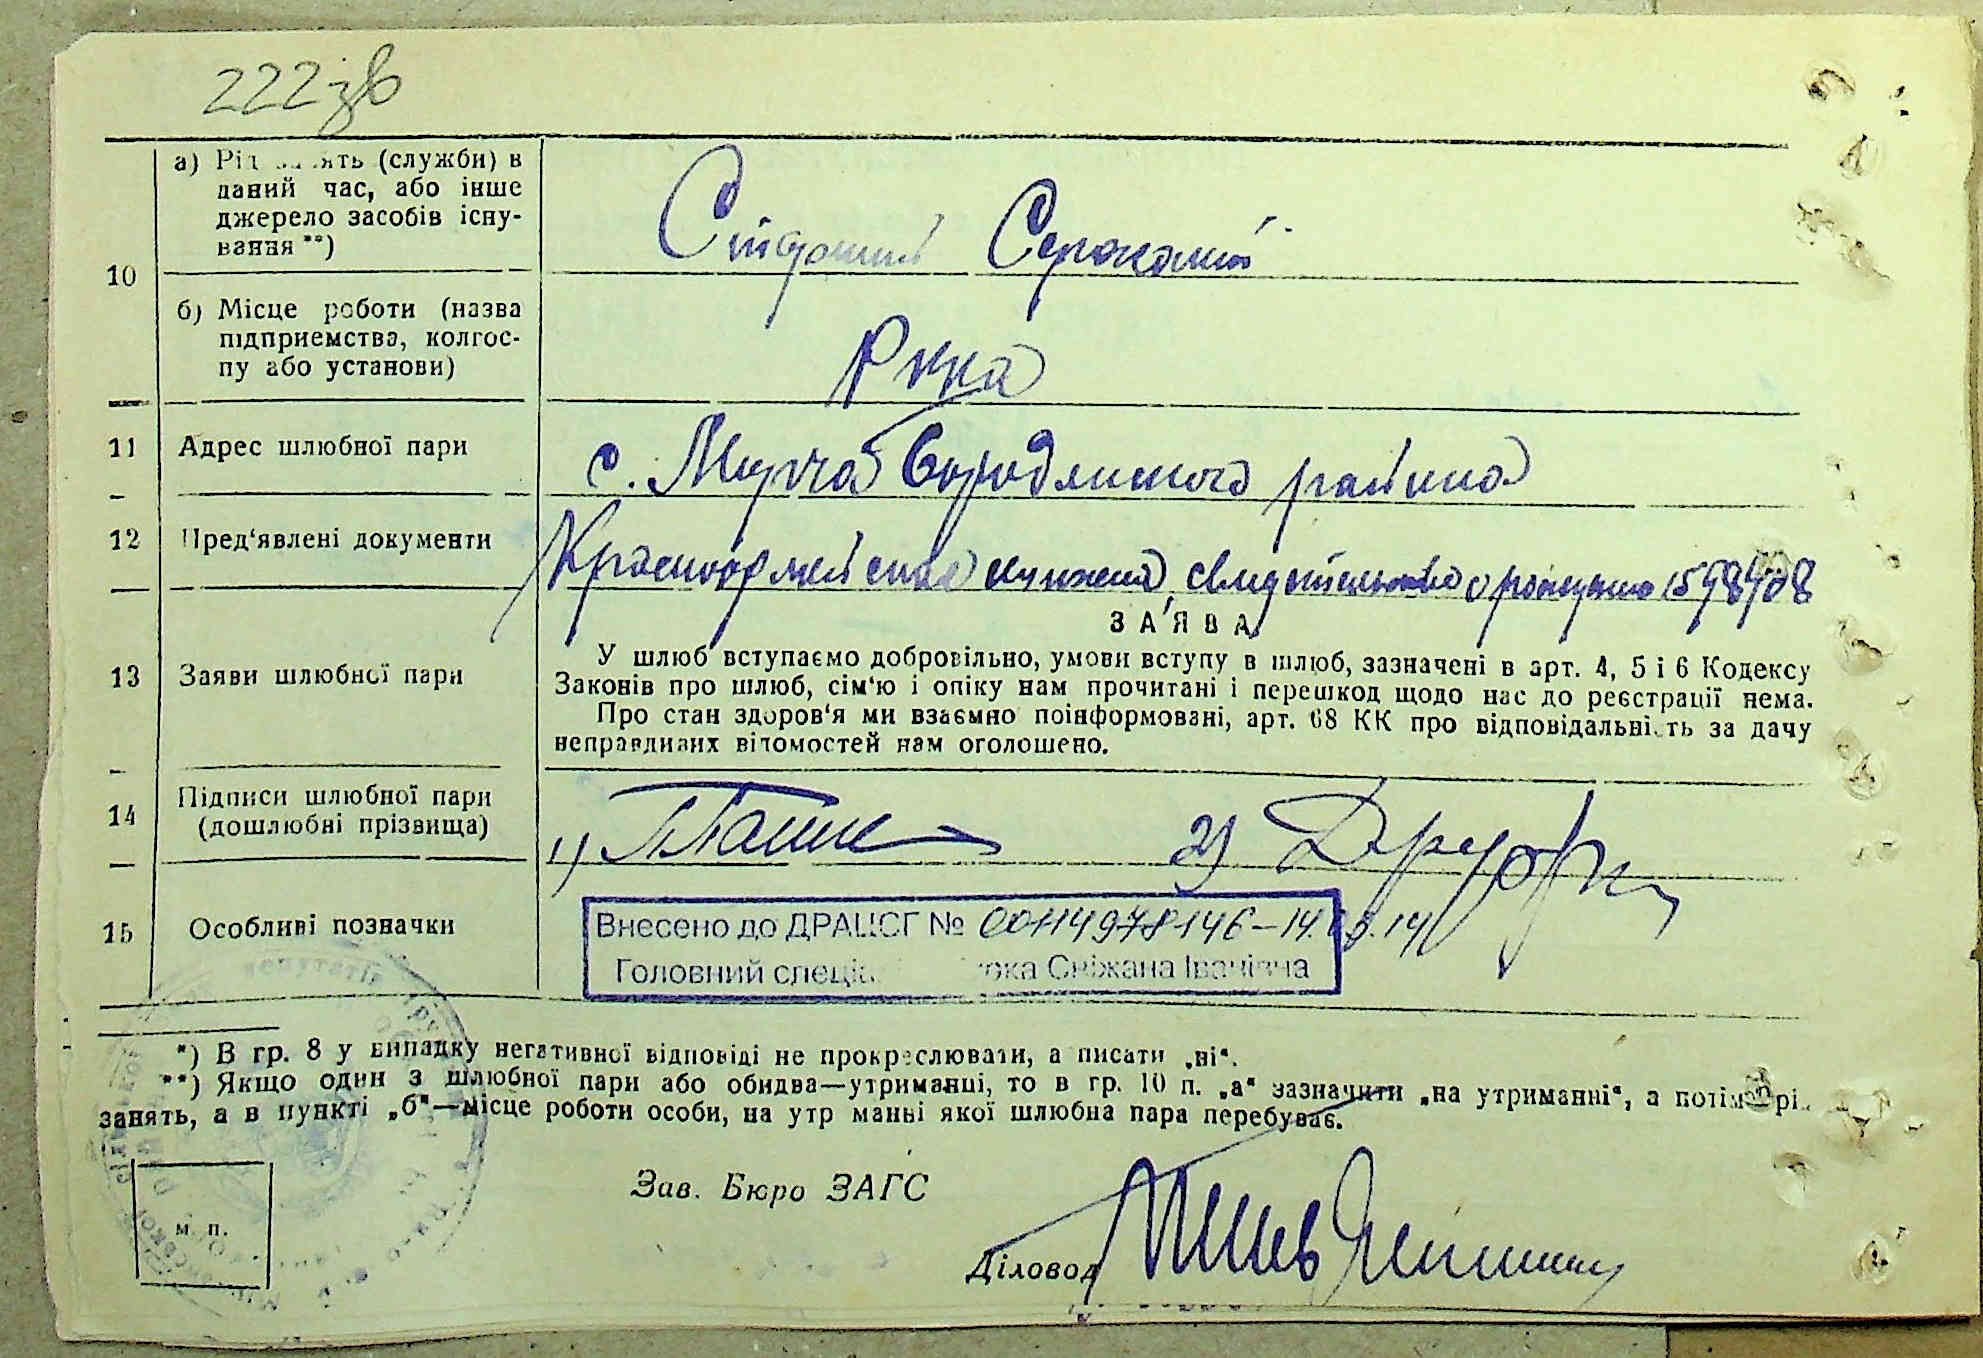 222зв
а) Рі ять (служби) в
даний час, або інше
джерело засобів існу-
вання **)
10
б) Місце роботи (назва
підприємства, колгос-
пу або установи)
Ркка
11 Адрес шлюбної пари
с. Мирча Бородянского района
12 Пред'явлені документи
Красноармейская книжка, 
13 Заяви шлюбної пари
ЗАЯВА
У шлюб вступаємо добровільно, умови вступу в шлюб, зазначені в арт. 4, 5 і 6 Кодексу
Законів про шлюб, сім'ю і опіку нам прочитані і перешкод щодо нас до реєстрації нема.
Про стан здоров'я ми взаємно поінформовані, арт. 68 КК про відповідальні ть за дачу
неправдивих відомостей нам оголошено.
14 Підписи шлюбної пари
(дошлюбні прізвища)
1) 2)
15 Особливі позначки
Внесено до ДРАЦСГ № 00114978146-14. .14
Головний спеціа Сніжана Іванівна
*) В гр. 8 у випадку негативної відповіді не прокреслювати, а писати „ні“.
**) Якщо один з шлюбної пари або обидва—утриманці, то в гр. 10 п. „а“ зазначити „на утриманні“, а потім рі
занять, а в пункті „б“—місце роботи особи, на утр манні якої шлюбна пара перебуває.
Зав. Бюро ЗАГС
м. п.
Діловод